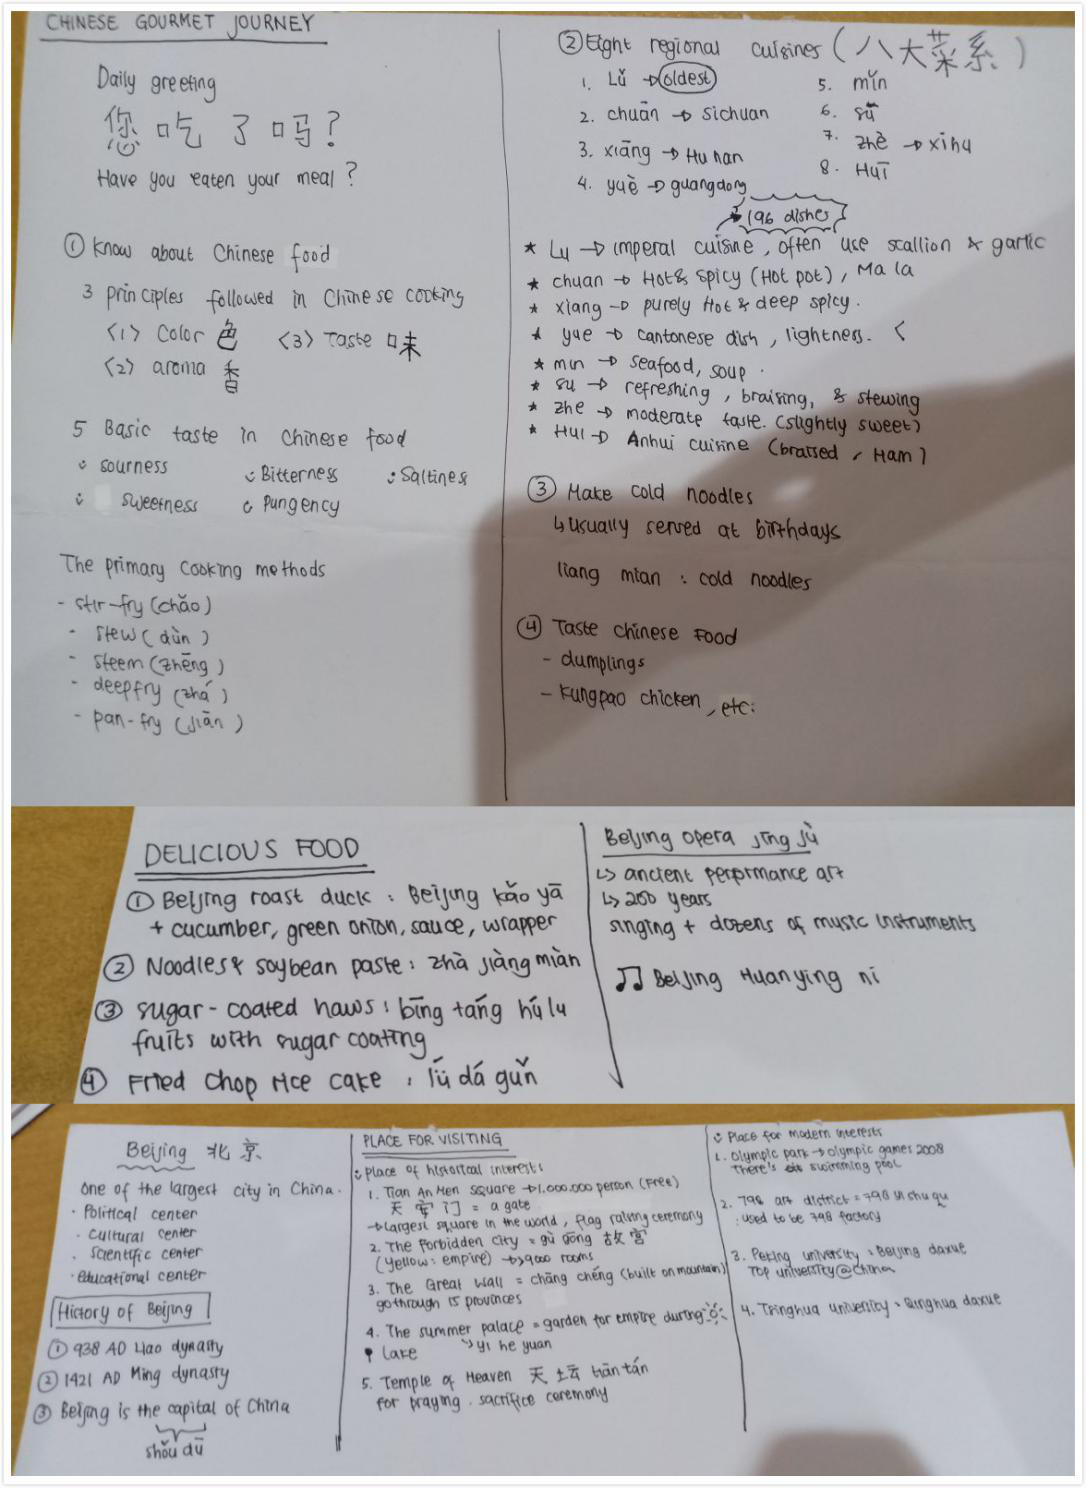 CHINESE GOURMET JOURNEY
Daily greeting
您吃了吗?
Have you eaten your meal?
① Know about Chinese food
3 principles followed in Chinese cooking
<1> Color 色 <3> Taste 味
<2> aroma 香
5 Basic taste in Chinese food
sourness Bitterness Saltines
sweetness Pungency
The primary cooking methods
- stir-fry (chǎo)
- stew (dùn)
- steem (zhēng)
- deepfry (zhá)
- pan-fry (jiān)
② Eight regional cuisines (八大菜系)
1. Lǔ → oldest
2. chuān → sichuan
3. xiāng → Hu nan
4. yuè → guangdong
5. mǐn
6. sū
7. zhè → xihu
8. Huī
196 dishes
* Lu → imperal cuisine, often use scallion & garlic
* chuan → Hot & spicy (Hot pot), Ma la
* xiang → purely Hot & deep spicy.
* yue → cantonese dish, lightness. <
* min → seafood, soup.
* su → refreshing, braising, & stewing
* zhe → moderate taste. (slightly sweet)
* Hui → Anhui cuisine (braised, Ham)
③ Make cold noodles
↳ usually served at birthdays
liang mian : cold noodles
④ Taste Chinese Food
- dumplings
- kungpao chicken, etc.
DELICIOUS FOOD
① Beijing roast duck : Beijing kǎo yā
+ cucumber, green onion, sauce, wrapper
② Noodles & soybean paste : zhà jiàng miàn
③ sugar-coated haws : bīng táng hú lu
fruits with sugar coating
④ Fried Chop rice cake : lǘ dá gǔn
Beijing opera jīng jù
↳ ancient performance art
↳ 200 years
singing + dozens of music instruments
♫ Beijing Huanying ni
Beijing 北京
One of the largest city in China.
· Political center
· Cultural center
· Scientific center
· educational center
History of Beijing
① 938 AD Liao dynasty
② 1421 AD Ming dynasty
③ Beijing is the capital of China
shǒu dū
PLACE FOR VISITING
Place of historical interests
1. Tian An Men square → 1.000.000 person (Free)
天安门 = a gate
→ Largest square in the world, flag raising ceremony
2. The Forbidden City = gù gōng 故宫
(yellow : empire) → 9000 rooms
3. The Great Wall = cháng chéng (built on mountain)
go through 15 provinces
4. The summer palace = garden for empire during
Lake ↘ yi he yuan
5. Temple of Heaven 天坛 tiān tán
for praying. sacrifice ceremony
Place for modern interests
1. Olympic park → olympic games 2008
There's swimming pool
2. 798 art district = 798 yi shu qu
: used to be 798 factory
3. Peking university = Beijing daxue
Top university @ China
4. Tsinghua university = Qinghua daxue